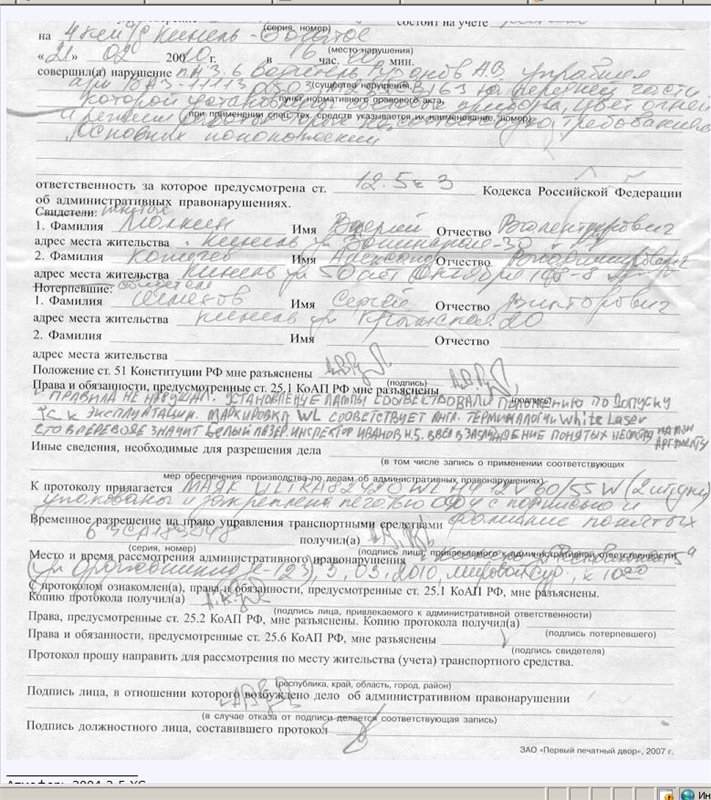 состоит на учете
(серия, номер)
на 4 км а/д Кинель - Богатое
(место нарушения)
«21» 02 2010 г. в 16 час. мин.
совершил(а) нарушение п. водитель А.В. управляя
(существо нарушения,
а/м ВАЗ-11113 163 на передней части
пункт нормативного правового акта,
которой установлены приборы, цвет огней
при применении спец. тех. средств указывается их наименование, номер)
и режим работы которых не соответствуют требованиям
Основных положений
ответственность за которое предусмотрена ст. 12.5 ч 3 Кодекса Российской Федерации
об административных правонарушениях.
Свидетели: понятые
1. Фамилия Имя Валерий Отчество Валентинович
адрес места жительства г. Кинель ул
2. Фамилия Имя Отчество Владимирович
адрес места жительства Кинель ул 50 лет Октября
Потерпевшие: свидетели
1. Фамилия Семенов Имя Сергей Отчество Викторович
адрес места жительства Кинель ул Крымская 20
2. Фамилия Имя Отчество
адрес места жительства
Положение ст. 51 Конституции РФ мне разъяснены
(подпись)
Права и обязанности, предусмотренные ст. 25.1 КоАП РФ мне разъяснены
(подпись)
ПРАВИЛА НЕ НАРУШАЛ. УСТАНОВЛЕНЫЕ ЛАМПЫ СООВЕСТВОВАЛИ ПОЛОЖЕНИЮ ПО ДОПУСКУ
ТС К ЭКСПЛУАТАЦИИ. МАРКИРОВКА WL СООВЕТСТВУЕТ АНГЛ. ТЕРМИНАЛОГИИ White Laser
ЧТО В ПЕРЕВОДЕ ЗНАЧИТ БЕЛЫЙ ЛАЗЕР. ИНСПЕКТОР ИВАНОВ Н.Б. ВВЕЛ В ЗАБЛУЖДЕНИЕ ПОНЯТЫХ
Иные сведения, необходимые для разрешения дела
(в том числе запись о применении соответствующих
мер обеспечения производства по делам об административных правонарушениях)
К протоколу прилагается МАЯК ULTRA 82420 WL H4 12V 60/55W (2 штуки)
упакованы и закреплена печатью с подписью и
Временное разрешение на право управления транспортными средствами фамилие понятых
63СА183948 получил(а)
(серия, номер) (подпись лица, привлекаемого к административной ответственности)
Место и время рассмотрения административного правонарушения
(ул 3.03.2010, мировой суд, к 10:00
С протоколом ознакомлен(а), права и обязанности, предусмотренные ст. 25.1 КоАП РФ, мне разъяснены.
Копию протокола получил(а)
(подпись лица, привлекаемого к административной ответственности)
Права, предусмотренные ст. 25.2 КоАП РФ, мне разъяснены. Копию протокола получил(а)
(подпись потерпевшего)
Права и обязанности, предусмотренные ст. 25.6 КоАП РФ, мне разъяснены
(подпись свидетеля)
Протокол прошу направить для рассмотрения по месту жительства (учета) транспортного средства.
(республика, край, область, город, район)
Подпись лица, в отношении которого возбуждено дело об административном правонарушении
(в случае отказа от подписи делается соответствующая запись)
Подпись должностного лица, составившего протокол
ЗАО «Первый печатный двор», 2007 г.
Ин